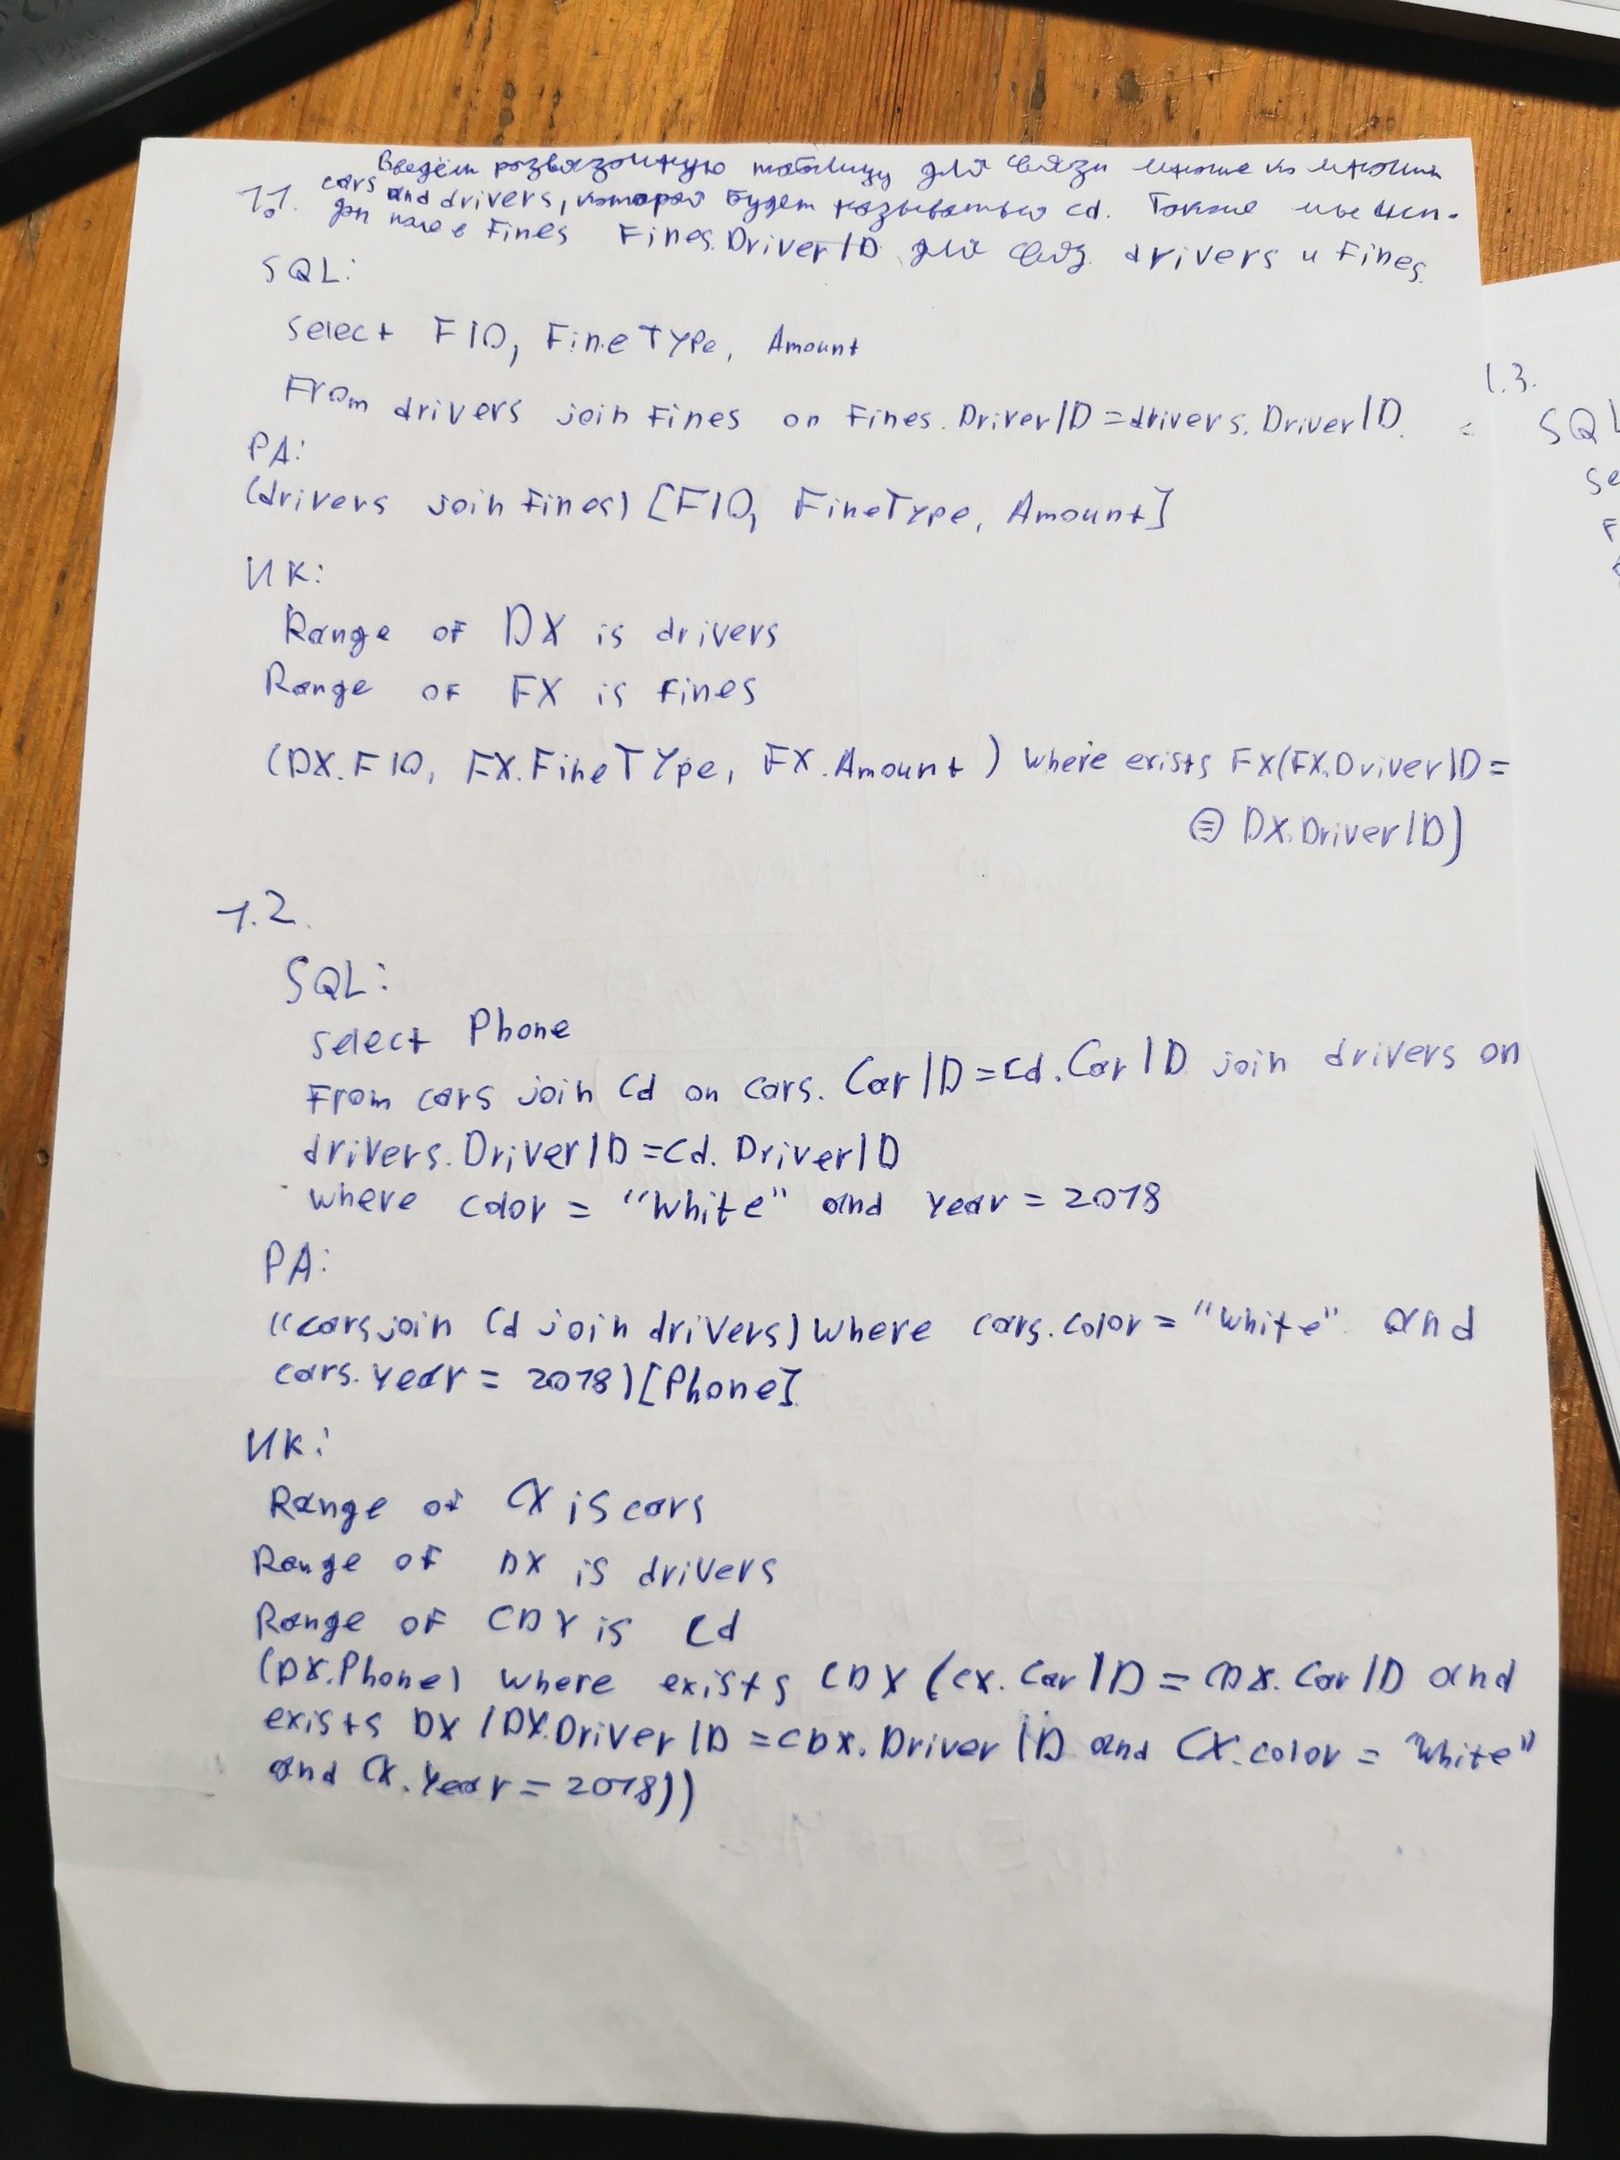 Введём развязочную таблицу для связи многие ко многим
1.1. cars and drivers, которая будет называться cd. Также мы исп.
доп поле в Fines Fines.DriverID для связ. drivers и Fines.
SQL:
Select FIO, FineType, Amount
From drivers join Fines on Fines.DriverID = drivers.DriverID.
РА:
(drivers join Fines) [FIO, FineType, Amount]
ИК:
Range of DX is drivers
Range of FX is Fines
(DX.FIO, FX.FineType, FX.Amount) where exists FX(FX.DriverID =
= DX.DriverID)
1.2.
SQL:
Select Phone
From cars join Cd on cars.CarID = Cd.CarID join drivers on
drivers.DriverID = Cd.DriverID
where color = "White" and year = 2018
РА:
((cars join Cd join drivers) where cars.color = "White" and
cars.year = 2018) [Phone]
ИК:
Range of CX is cars
Range of DX is drivers
Range of CDX is Cd
(DX.Phone) where exists CDX (CX.CarID = CDX.CarID and
exists DX (DX.DriverID = CDX.DriverID and CX.color = "White"
and CX.Year = 2018))
1.3.
SQL
Se
F